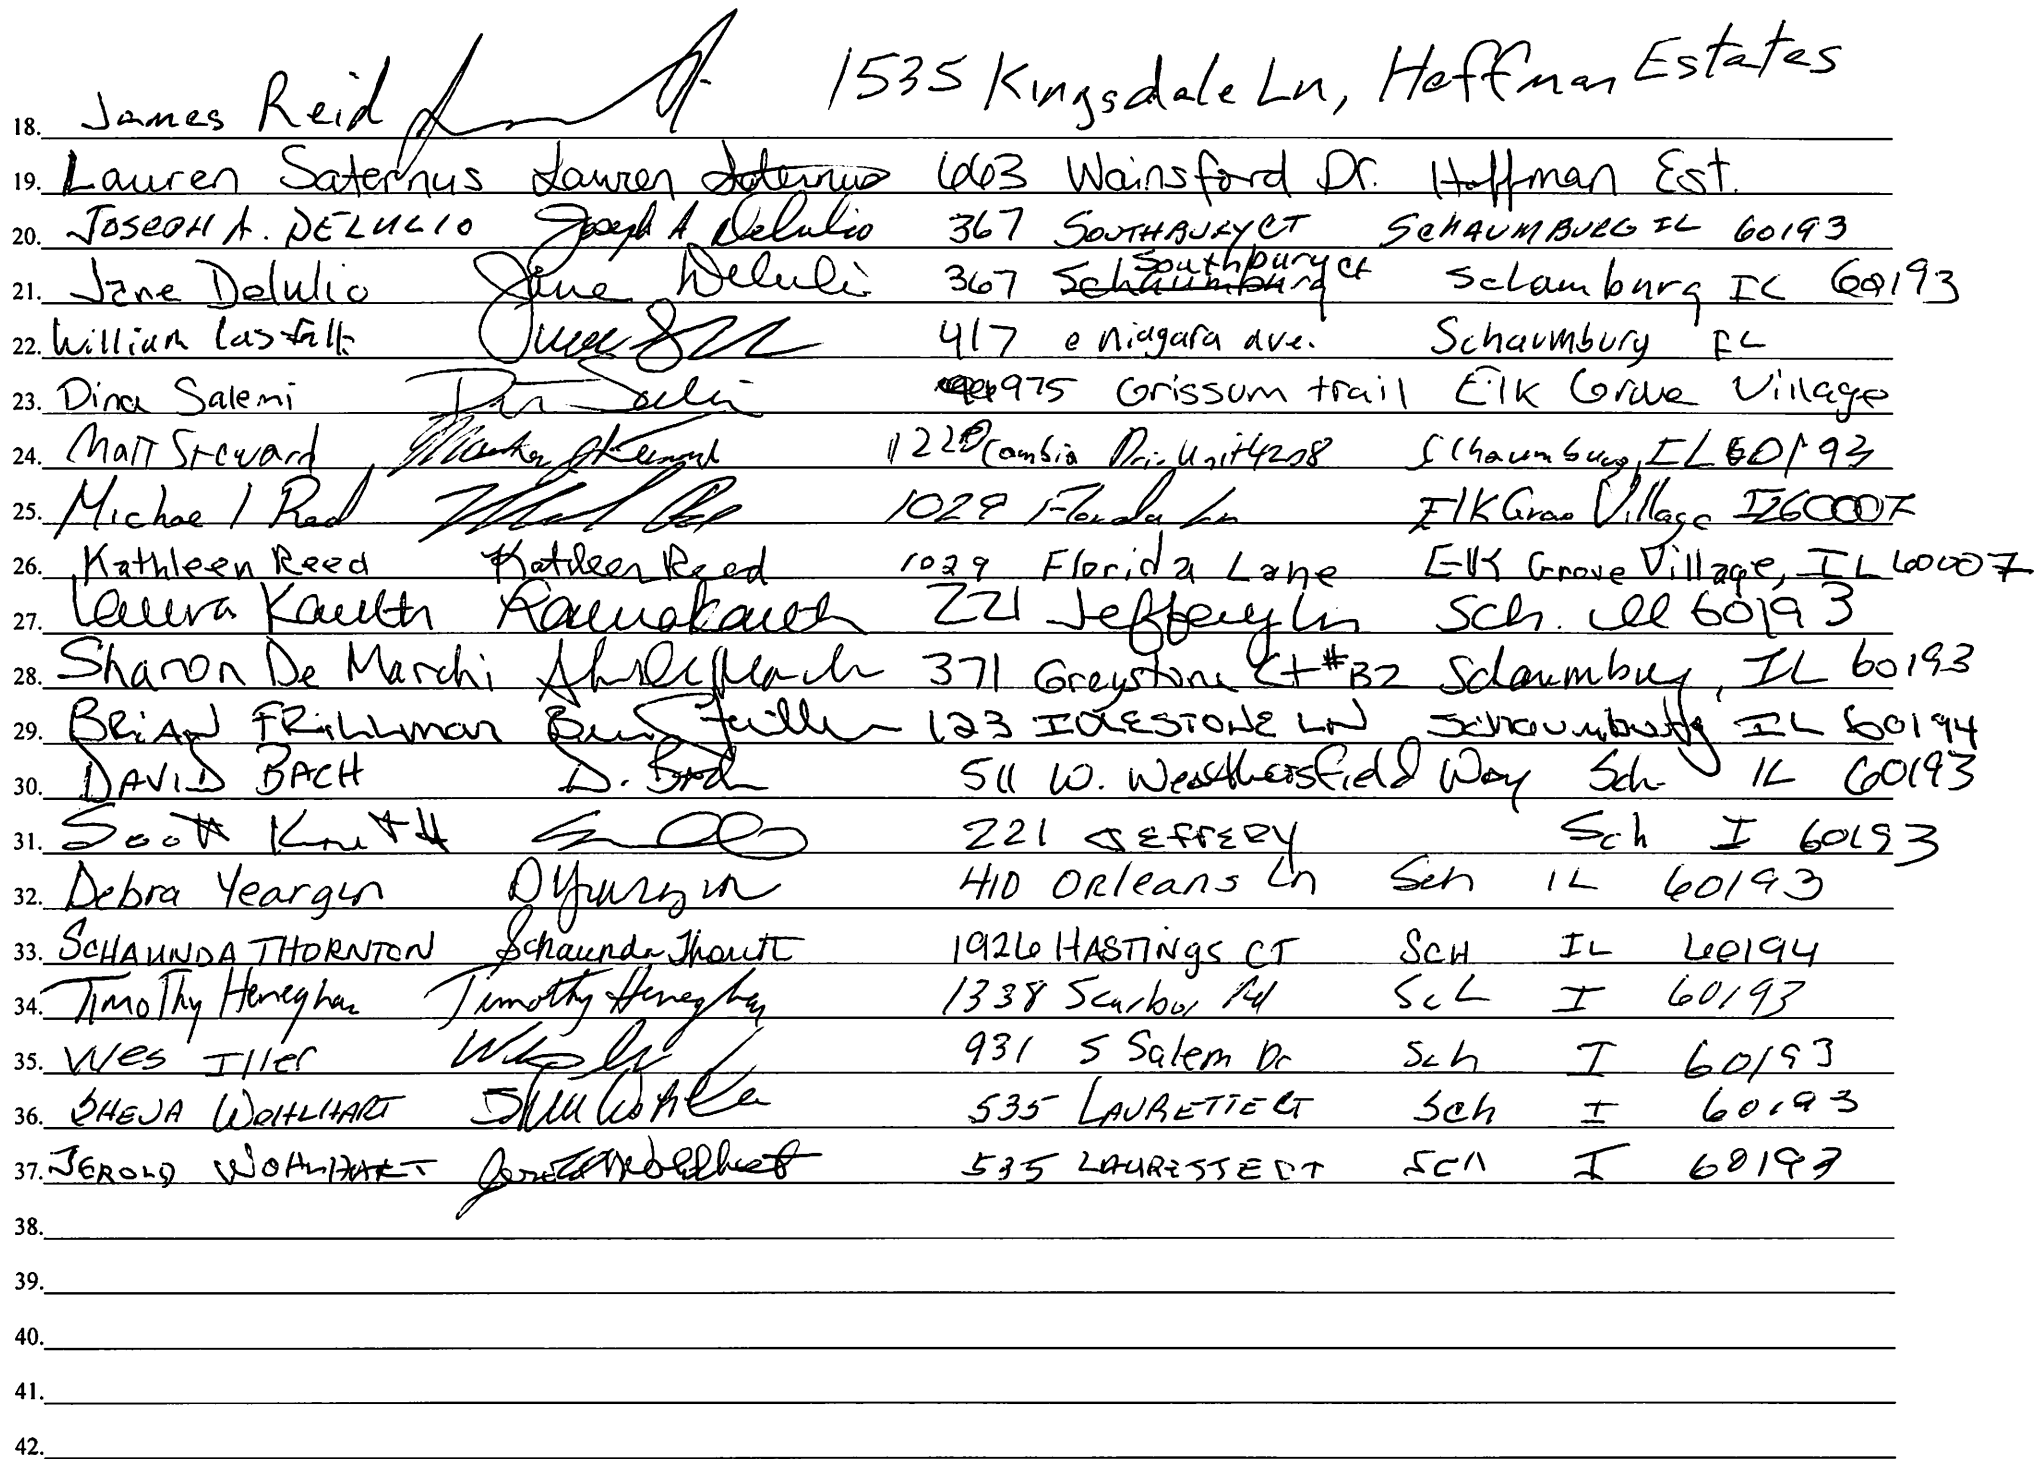 18. James Reid 1535 Kingsdale Ln, Hoffman Estates
19. Lauren Saternus Lauren Saternus 663 Wainsford Dr. Hoffman Est.
20. JOSEPH A. DELULIO Joseph A Delulio 367 SOUTHBURY CT SCHAUMBURG IL 60193
21. Jane Delulio Jane Delulio 367 Schaumburg Southbury ct Schamburg IL 60193
22. William 417 e niagara ave. Schaumburg IL
23. Dina Salemi 975 Grissum trail Elk Grove Village
24. Matt Steward 1220 Cambia Dr. Unit 4208 Schaumburg, IL 60193
25. Michael Reed 1029 Florida Ln Elk Grove Village IL 60007
26. Kathleen Reed Kathleen Reed 1029 Florida Lane Elk Grove Village, IL 60007
27. Laura 221 Jeffery Ln Sch. Ill 60193
28. Sharon De Marchi 371 Greystone Ct #B2 Schaumburg, IL 60193
29. BRIAN FRILLMAN 123 IDLESTONE LN Schaumburg IL 60194
30. DAVID BACH D. Bach 511 W. Weathersfield Way Sch IL 60193
31. Scott 221 JEFFERY Sch I 60193
32. Debra Yeargin DYeargin 410 ORleans Ln Sch IL 60193
33. SCHAUNDA THORNTON Schaunda 1926 HASTINGS CT SCH IL 60194
34. Timothy Heneghan Timothy Heneghan 1338 Scarbor Rd Sch I 60193
35. Wes Iller 931 S Salem Dr Sch I 60193
36. WOHLHART 535 LAURETTE CT Sch I 60193
37. JEROLD WOHLHART 535 LAURETTE CT SCH I 60193
38.
39.
40.
41.
42.